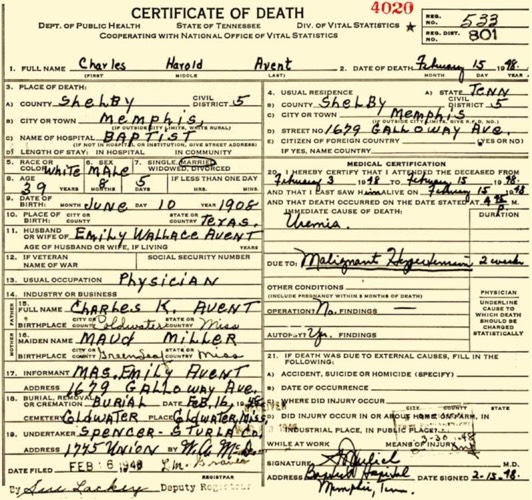 CERTIFICATE OF DEATH
4020
DEPT. OF PUBLIC HEALTH STATE OF TENNESSEE DIV. OF VITAL STATISTICS
COOPERATING WITH NATIONAL OFFICE OF VITAL STATISTICS
REG. NO. 533
REG. DIST. 801
1. FULL NAME Charles Harold Avent
(FIRST) MIDDLE LAST)
2. DATE OF DEATH February 15 1948
MONTH DAY YEAR
3. PLACE OF DEATH:
A) COUNTY Shelby CIVIL DISTRICT 5
B) CITY OR TOWN Memphis
(IF OUTSIDE CITY LIMITS, WRITE RURAL)
C) NAME OF HOSPITAL BAPTIST
(IF NOT IN HOSPITAL OR INSTITUTION, GIVE STREET ADDRESS)
D) LENGTH OF STAY: IN HOSPITAL IN COMMUNITY
4. USUAL RESIDENCE A) STATE TENN
B) COUNTY Shelby CIVIL DISTRICT 5
C) CITY OR TOWN Memphis
D) STREET NO 1679 GALLOWAY AVE.
E) CITIZEN OF FOREIGN COUNTRY (YES OR NO)
IF YES, NAME COUNTRY
5. RACE OR COLOR White 6. SEX MALE 7. SINGLE, MARRIED WIDOWED, DIVORCED
8. AGE 39 YEARS 8 MONTHS 5 DAYS IF LESS THAN ONE DAY HRS. MIN.
9. DATE OF BIRTH: JUNE 10 1908
MONTH DAY YEAR
10. PLACE OF BIRTH: CITY OR COUNTY STATE OR COUNTRY TEXAS.
11. HUSBAND OR WIFE OF Emily WALLACE AVENT
AGE OF HUSBAND OR WIFE, IF LIVING YEARS
12. IF VETERAN NAME OF WAR SOCIAL SECURITY NUMBER
13. USUAL OCCUPATION Physician
14. INDUSTRY OR BUSINESS
FATHER
15. FULL NAME CHARLES K AVENT
BIRTHPLACE CITY OR COUNTY Coldwater STATE OR COUNTRY Miss
MOTHER
16. MAIDEN NAME MAUD MILLER
BIRTHPLACE CITY OR COUNTY STATE OR COUNTRY Miss
17. INFORMANT MRS. Emily AVENT
ADDRESS 1679 GALLOWAY AVE.
18. BURIAL, REMOVAL OR CREMATION BURIAL DATE FEB 16, 1948
CEMETERY COLDWATER PLACE COLDWATER, MISS
19. UNDERTAKER SPENCER-STURLA CO.
ADDRESS 1745 UNION BY
DATE FILED FEB 16 1948
REGISTRAR
By Deputy Registrar
MEDICAL CERTIFICATION
20. I HEREBY CERTIFY THAT I ATTENDED THE DECEASED FROM
February 3 1948 TO February 15 1948
AND THAT I LAST SAW HIM ALIVE ON February 15 1948
AND THAT DEATH OCCURRED ON THE DATE STATED AT M.
IMMEDIATE CAUSE OF DEATH: DURATION
Uremia.
DUE TO: Malignant Hypertension 2 weeks
OTHER CONDITIONS
(INCLUDE PREGNANCY WITHIN 3 MONTHS OF DEATH)
OPERATION? No. FINDINGS —
AUTOPSY? Yes. FINDINGS
PHYSICIAN
UNDERLINE CAUSE TO WHICH DEATH SHOULD BE CHARGED STATISTICALLY
21. IF DEATH WAS DUE TO EXTERNAL CAUSES, FILL IN THE FOLLOWING:
A) ACCIDENT, SUICIDE OR HOMICIDE (SPECIFY)
B) DATE OF OCCURRENCE
C) WHERE DID INJURY OCCUR
D) DID INJURY OCCUR IN OR ABOUT HOME OR FARM, IN INDUSTRIAL PLACE, IN PUBLIC PLACE?
WHILE AT WORK MEANS OF INJURY
3-30-48
SIGNATURE M.D.
ADDRESS Baptist Hospital DATE SIGNED 2-15-48
Memphis, Tenn.